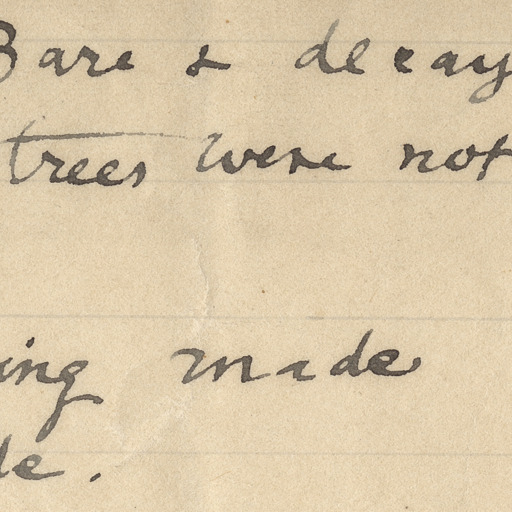 Bare & decay
trees were not
ing made
de.